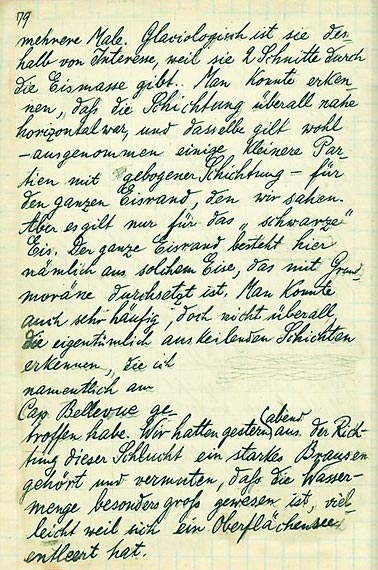 79
mehrere Male. Glaciologisch ist sie des-
halb von Interesse, weil sie 2 Schnitte durch
die Eismasse gibt. Man konnte erken-
nen, daß die Schichtung überall nahe
horizontal war, und dasselbe gilt wohl
– ausgenommen einige kleinere Par-
tien mit gebogener Schichtung – für
den ganzen Eisrand, den wir sahen.
Aber es gilt nur für das „schwarze"
Eis. Der ganze Eisrand besteht hier
nämlich aus solchem Eise, das mit Grund-
moräne durchsetzt ist. Man konnte
auch sehr häufig, doch nicht überall,
die eigentümlich auskeilenden Schichten
erkennen, die ich
namentlich am
Cap Bellevue ge-
troffen habe. Wir hatten gestern (abend aus der Rich-
tung dieser Schlucht ein starkes Brausen
gehört und vermuten, daß die Wasser-
menge besonders gross gewesen ist, viel-
leicht weil sich ein Oberflächensee
entleert hat.